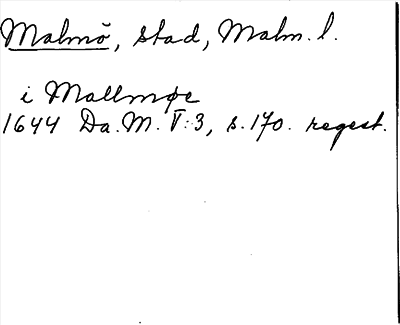 Malmö, stad, Malm. l.
i Mallmøe
1644 Da. M. V:3, s. 170. regest.